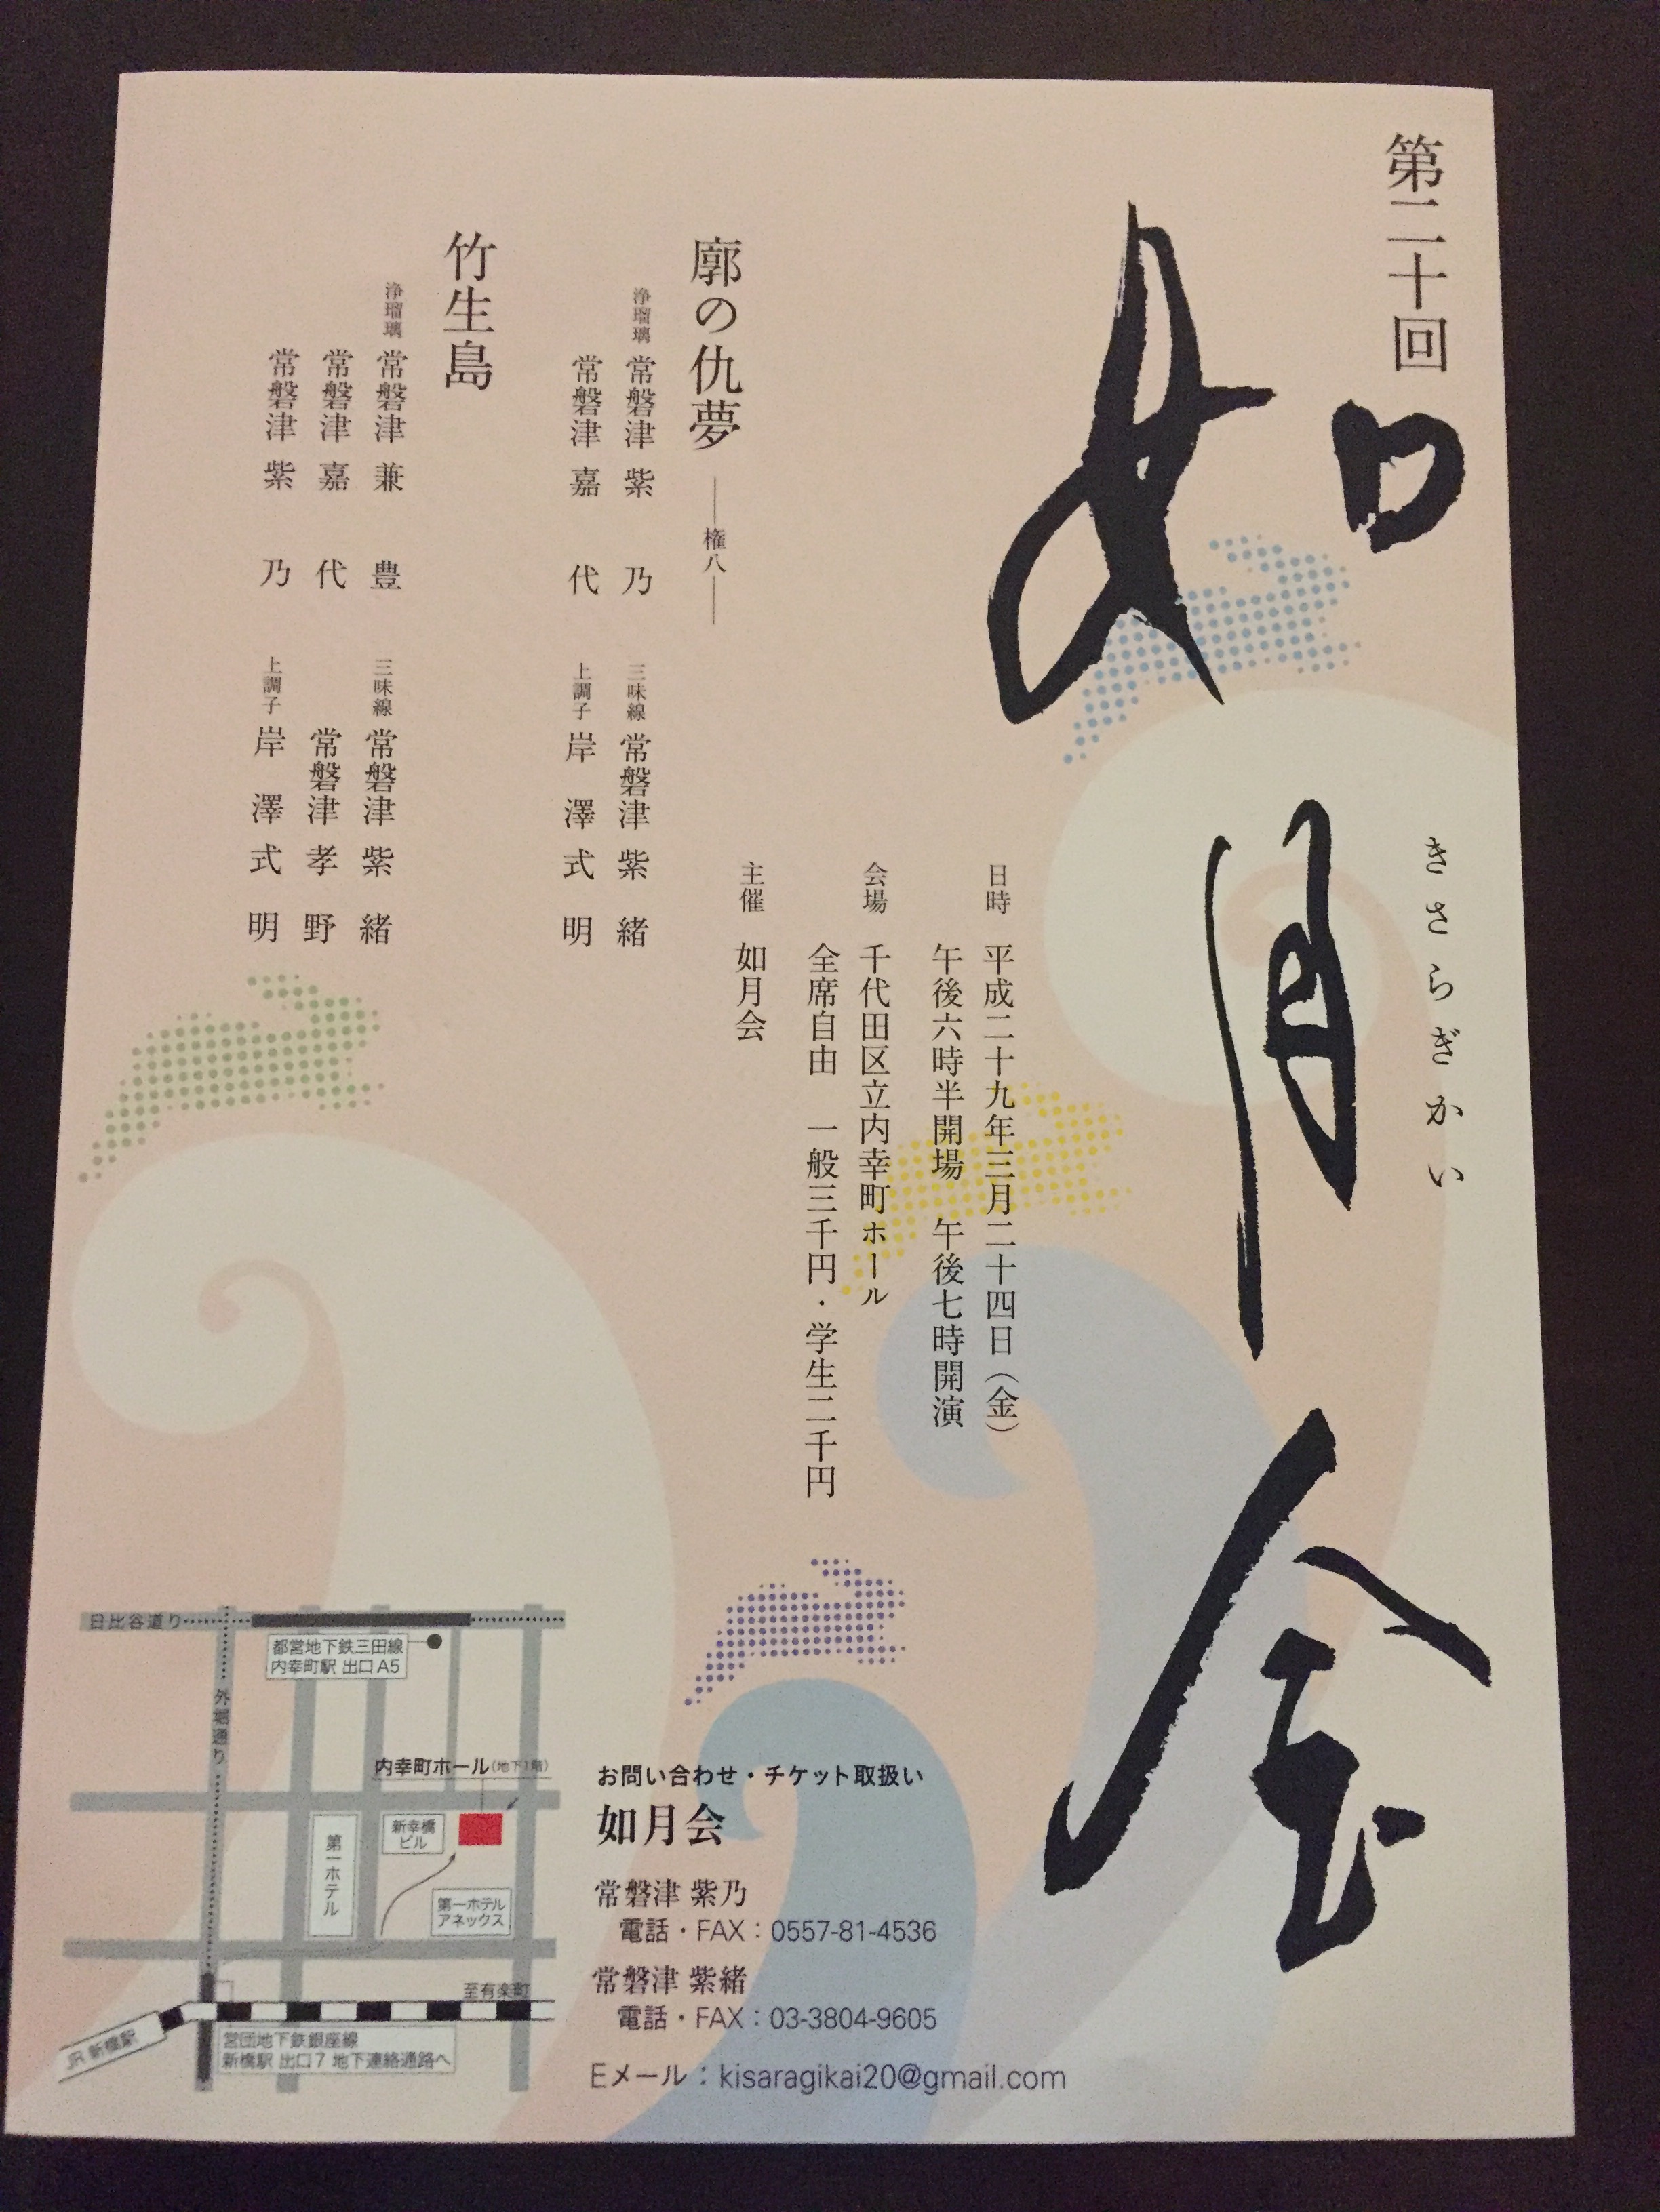 第二十回
如月会
きさらぎかい
日時 平成二十九年三月二十四日（金）
午後六時半開場 午後七時開演
会場 千代田区立内幸町ホール
全席自由 一般三千円・学生二千円
主催 如月会
廓の仇夢 ―権八―
浄瑠璃 常磐津 紫乃
常磐津 嘉代
三味線 常磐津 紫緒
上調子 岸澤式明
竹生島
浄瑠璃 常磐津 兼豊
常磐津 嘉代
常磐津 紫乃
三味線 常磐津 紫緒
常磐津 孝野
上調子 岸澤式明
お問い合わせ・チケット取扱い
如月会
常磐津 紫乃
電話・FAX：0557-81-4536
常磐津 紫緒
電話・FAX：03-3804-9605
Eメール：kisaragikai20@gmail.com
日比谷通り
都営地下鉄三田線
内幸町駅 出口A5
外堀通り
内幸町ホール（地下1階）
新幸橋
ビル
第一ホテル
第一ホテル
アネックス
至有楽町
JR 新橋駅
営団地下鉄銀座線
新橋駅 出口7 地下連絡通路へ